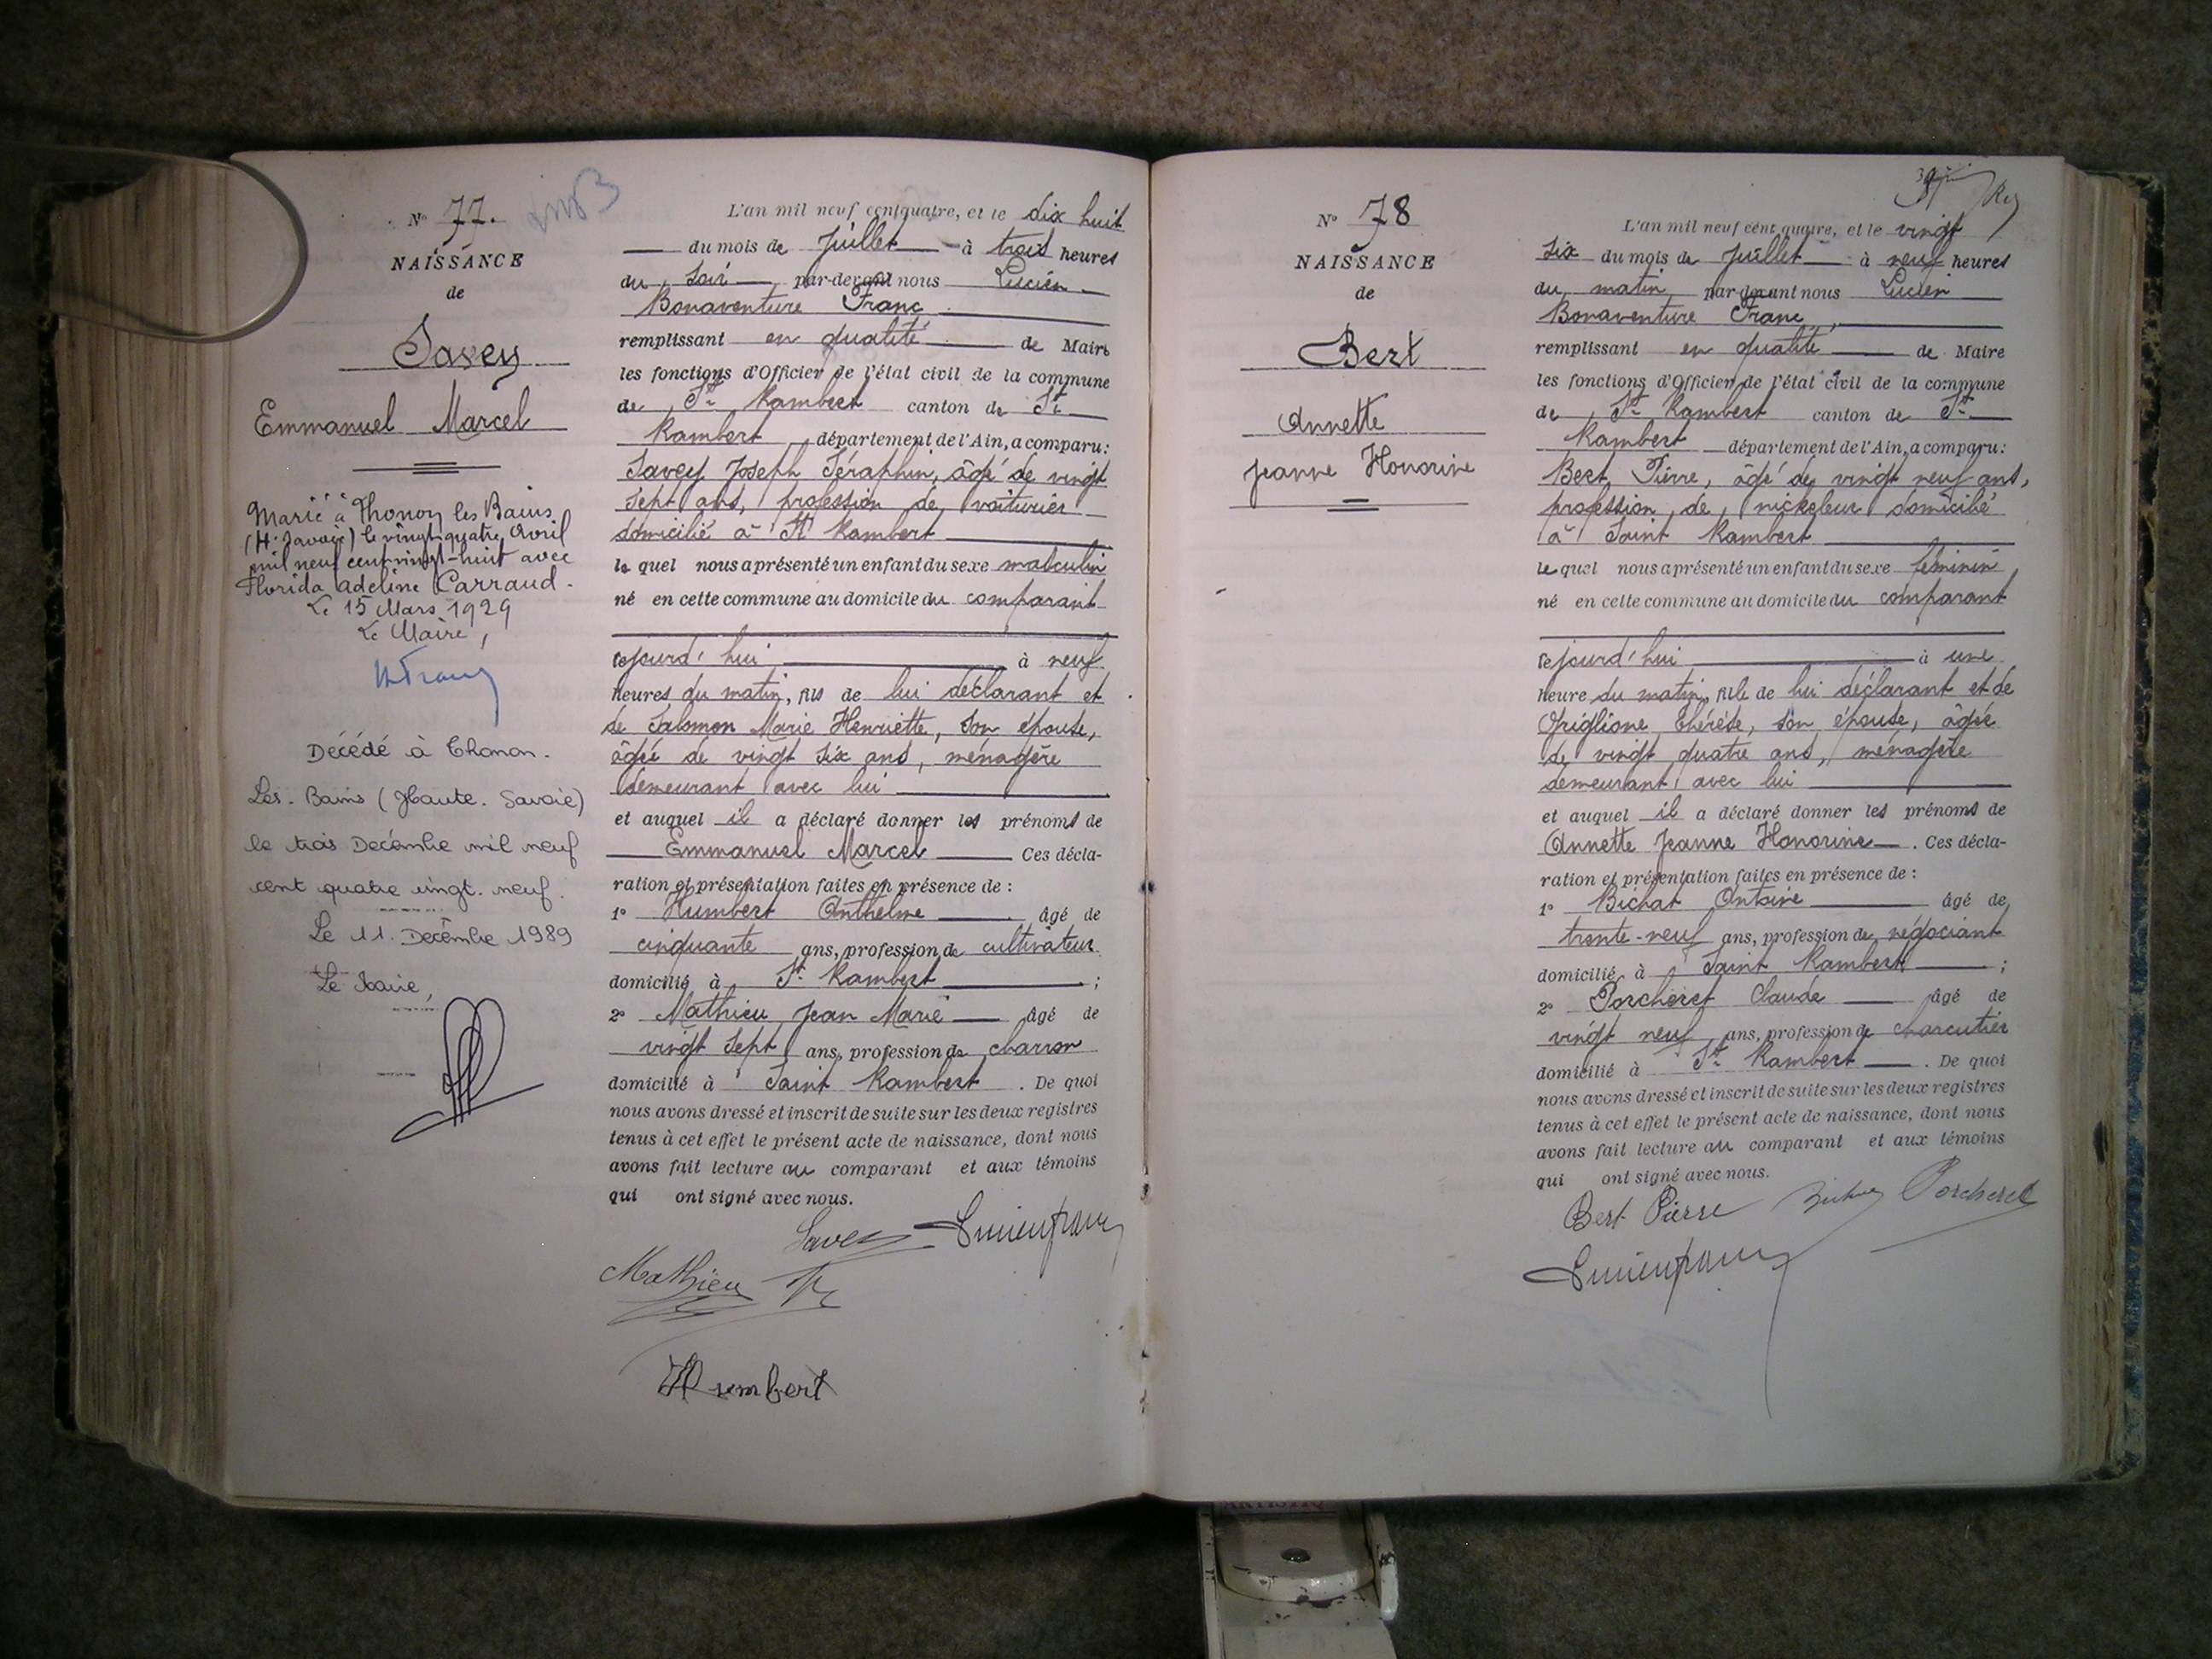 N° 77.
NAISSANCE
de
Savey
Emmanuel Marcel
Marié à Thonon les Bains
(Hte Savoie) le vingt quatre Avril
mil neuf cent vingt-huit avec
Florida Adeline Carraud.
Le 15 Mars 1929
Le Maire,
Décédé à Thonon.
Les. Bains (Haute. Savoie)
le trois Décembre mil neuf
cent quatre vingt. neuf.
Le 11. Décembre 1989
Le Maire,
L'an mil neuf cent quatre, et le dix huit
du mois de Juillet à trois heures
du soir par-devant nous Lucien
Bonaventure Franc
remplissant en qualité de Maire
les fonctions d'Officier de l'état civil de la commune
de St Rambert canton de St
Rambert département de l'Ain, a comparu:
Savey Joseph Séraphin, âgé de vingt
sept ans, profession de voiturier
domicilié à St Rambert
le quel nous a présenté un enfant du sexe masculin
né en cette commune au domicile du comparant
cejourd'hui à neuf
heures du matin, fils de lui déclarant et
de Salomon Marie Henriette, son épouse,
âgée de vingt six ans, ménagère
demeurant avec lui
et auquel il a déclaré donner les prénoms de
Emmanuel Marcel Ces décla-
ration et présentation faites en présence de :
1° Humbert Anthelme âgé de
cinquante ans, profession de cultivateur
domicilié à St Rambert ;
2° Mathieu Jean Marie âgé de
vingt sept ans, profession de charron
domicilié à Saint Rambert . De quoi
nous avons dressé et inscrit de suite sur les deux registres
tenus à cet effet le présent acte de naissance, dont nous
avons fait lecture au comparant et aux témoins
qui ont signé avec nous.
Savey Lucien Franc
Mathieu
Humbert
N° 78
NAISSANCE
de
Bert
Annette
Jeanne Honorine
39
L'an mil neuf cent quatre, et le vingt
six du mois de Juillet à neuf heures
du matin par-devant nous Lucien
Bonaventure Franc,
remplissant en qualité de Maire
les fonctions d'Officier de l'état civil de la commune
de St Rambert canton de St
Rambert département de l'Ain, a comparu:
Bert Pierre, âgé de vingt neuf ans,
profession de nickeleur domicilié
à Saint Rambert
le quel nous a présenté un enfant du sexe féminin
né en cette commune au domicile du comparant
cejourd'hui à une
heure du matin, fille de lui déclarant et de
Origlione Thérèse, son épouse, âgée
de vingt quatre ans, ménagère
demeurant avec lui
et auquel il a déclaré donner les prénoms de
Annette Jeanne Honorine . Ces décla-
ration et présentation faites en présence de :
1° Bichat Antoine âgé de
trente-neuf ans, profession de négociant
domicilié à Saint Rambert ;
2° Porcheret Claude âgé de
vingt neuf ans, profession de charcutier
domicilié à St Rambert . De quoi
nous avons dressé et inscrit de suite sur les deux registres
tenus à cet effet le présent acte de naissance, dont nous
avons fait lecture au comparant et aux témoins
qui ont signé avec nous.
Bert Pierre Bichat Porcheret
Lucien Franc